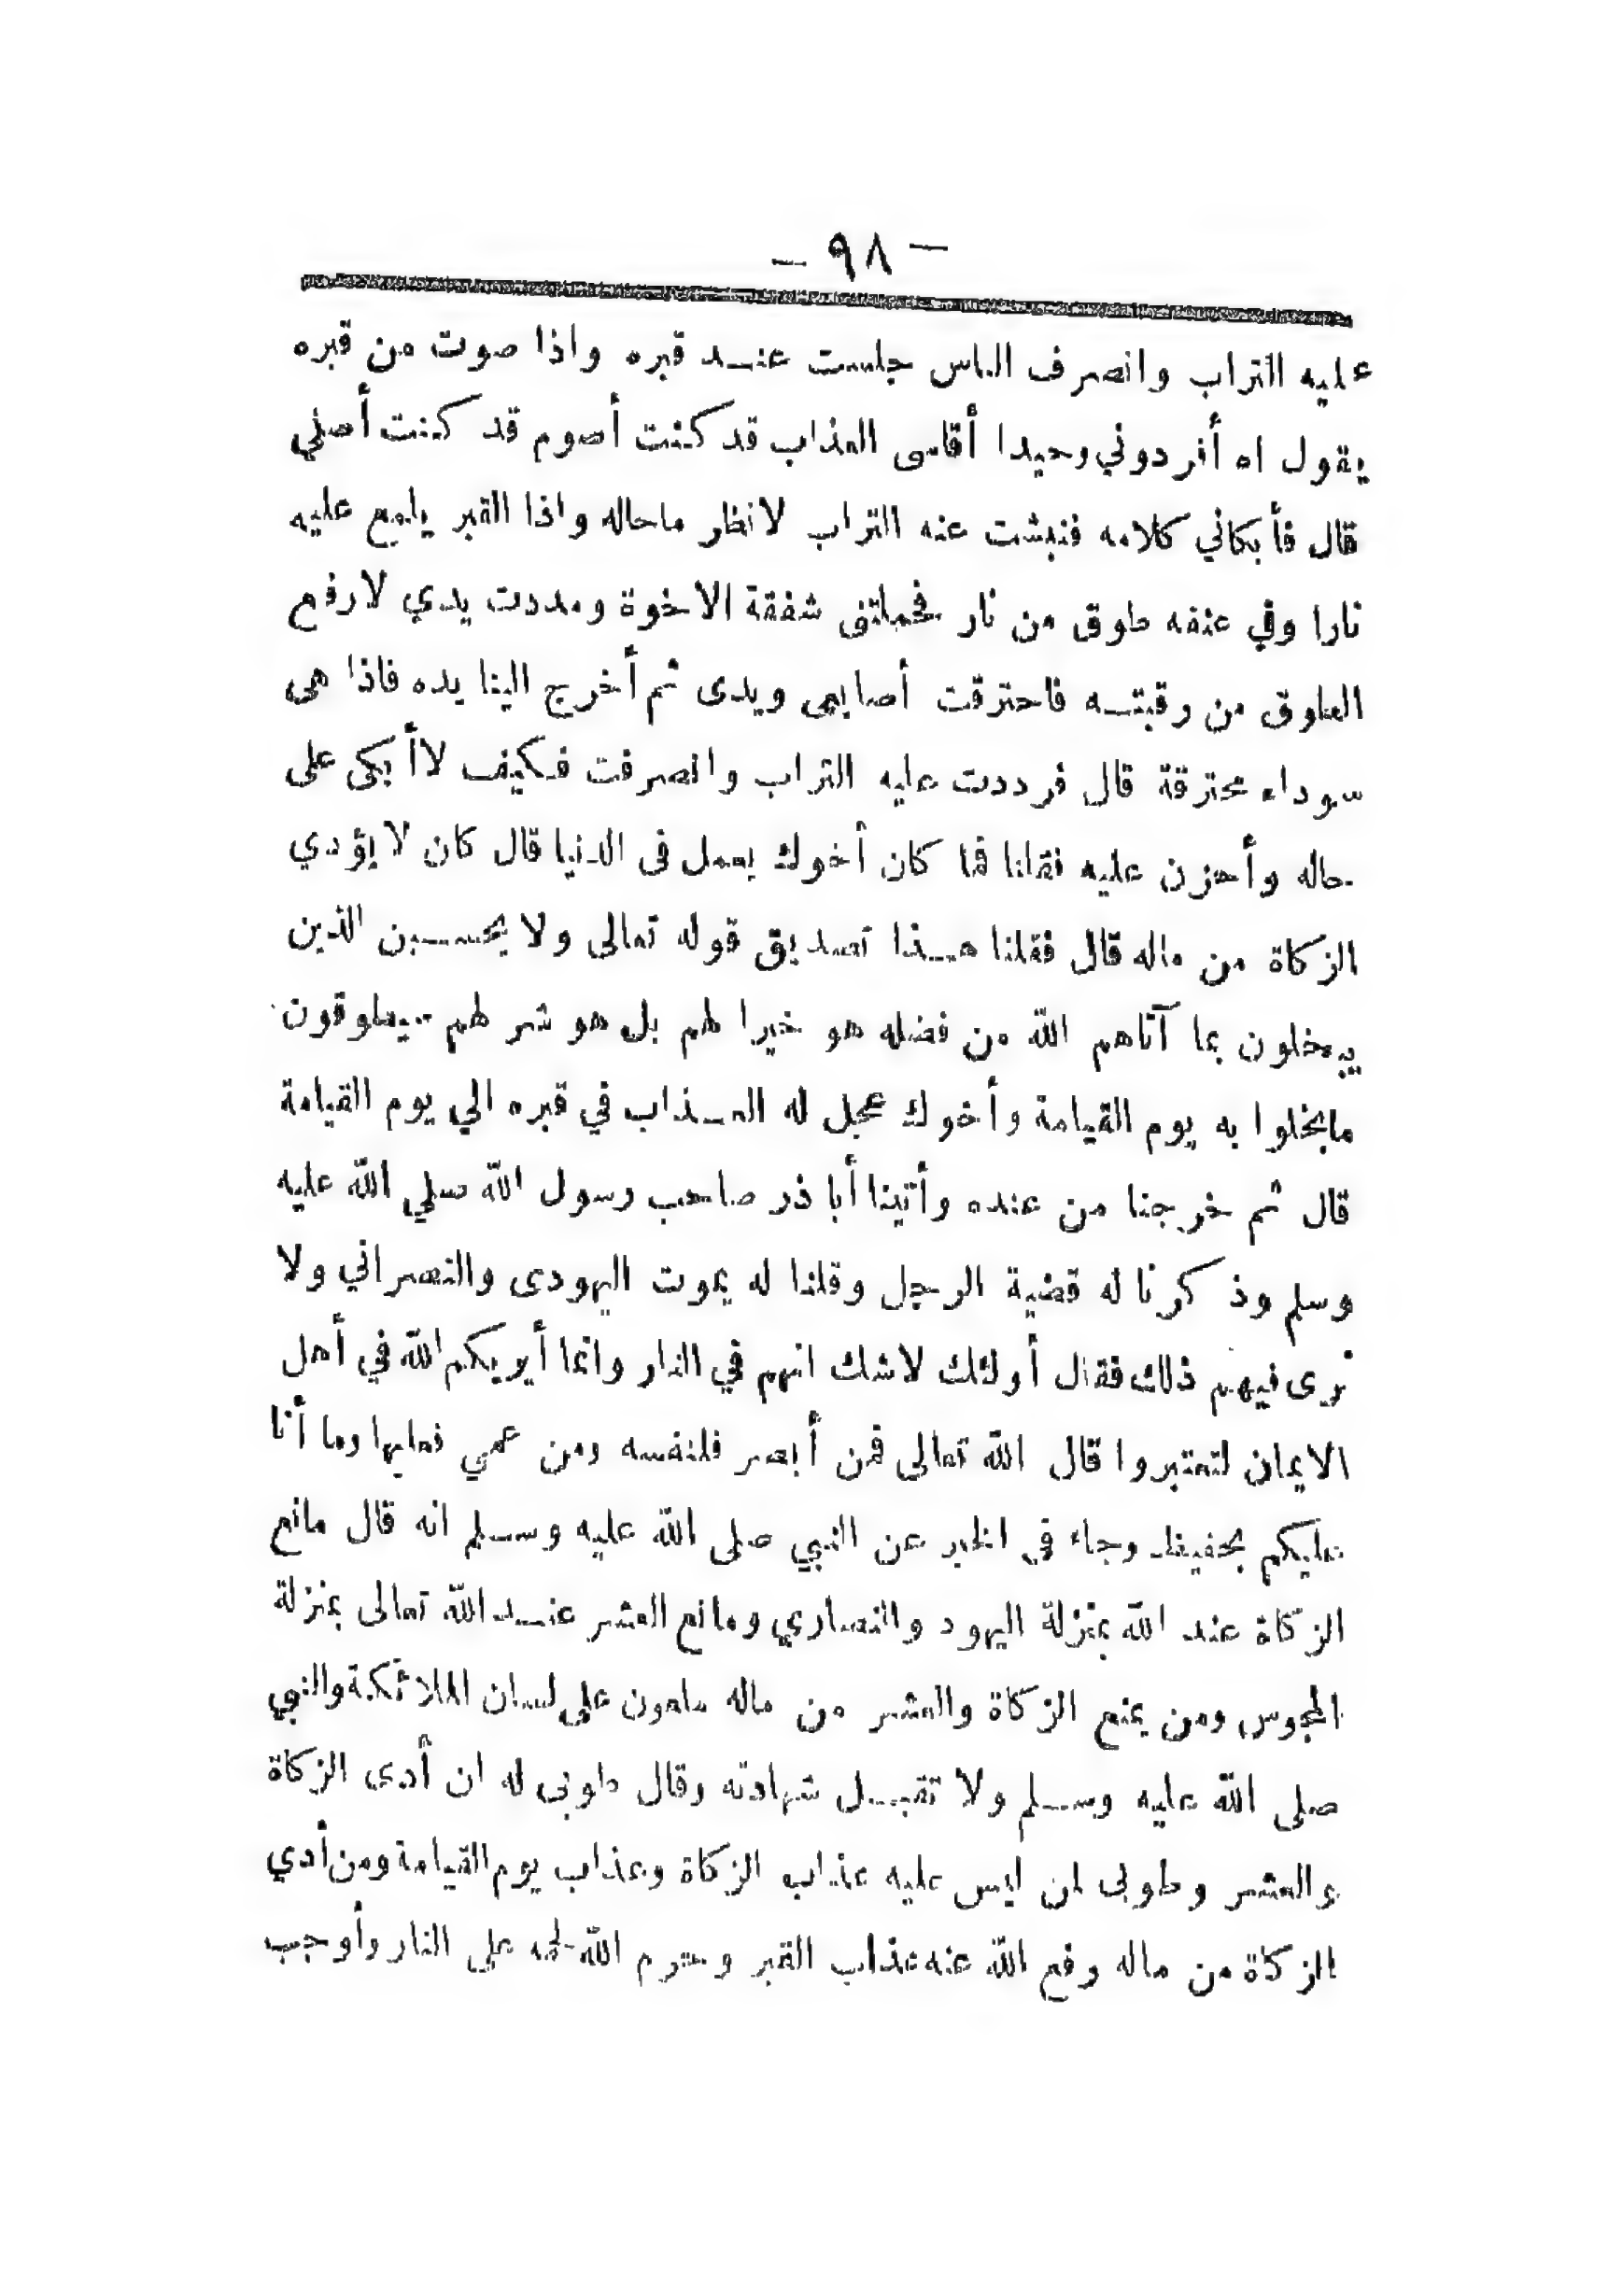 — ٩٨ —
عليه التراب وانصرف الناس جلست عند قبره واذا صوت من قبره
يقول اه أفردوني وحيدا أقاسى العذاب قد كنت أصوم قد كنت أصلي
قال فأبكاني كلامه فنبشت عنه التراب لانظر ماحاله واذا القبر يلمع عليه
نارا وفي عنقه طوق من نار فحملتنى شفقة الاخوة ومددت يدي لارفع
الطوق من رقبته فاحترقت أصابعى ويدى ثم أخرج الينا يده فاذا هى
سوداء محترقة قال فرددت عليه التراب وانصرفت فكيف لاأبكى على
حاله وأحزن عليه فقلنا فما كان أخوك يعمل فى الدنيا قال كان لايؤدي
الزكاة من ماله قال فقلنا هذا تصديق قوله تعالى ولا يحسبن الذين
يبخلون بما آتاهم الله من فضله هو خيرا لهم بل هو شر لهم سيطوقون
مابخلوا به يوم القيامة وأخوك عجل له العذاب في قبره الي يوم القيامة
قال ثم خرجنا من عنده وأتينا أبا ذر صاحب رسول الله صلي الله عليه
وسلم وذكرنا له قضية الرجل وقلنا له يموت اليهودى والنصراني ولا
نرى فيهم ذلك فقال أولئك لاشك انهم في النار وانما أيريكم الله في أهل
الايمان لتعتبروا قال الله تعالى فمن أبصر فلنفسه ومن عمي فعليها وما أنا
عليكم بحفيظ وجاء فى الخبر عن النبي صلى الله عليه وسلم انه قال مانع
الزكاة عند الله بمنزلة اليهود والنصاري ومانع العشر عند الله تعالى بمنزلة
المجوس ومن يمنع الزكاة والعشر من ماله ملعون على لسان الملائكة والنبي
صلى الله عليه وسلم ولا تقبل شهادته وقال طوبى له ان أدى الزكاة
والعشر وطوبى لمن ليس عليه عذاب الزكاة وعذاب يوم القيامة ومن أدي
الزكاة من ماله رفع الله عنه عذاب القبر وحرم الله لحمه على النار وأوجب